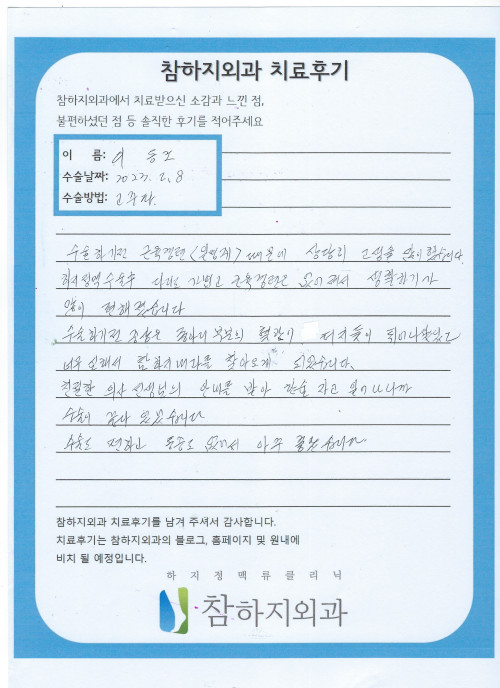 참하지외과 치료후기
참하지외과에서 치료받으신 소감과 느낀 점,
불편하셨던 점 등 솔직한 후기를 적어주세요
이 름: 이
수술날짜: 2023. 2. 8
수술방법: 고주파
수술하기전 근육경련 때문에 상당히 고생을 많이 했습니다.
하지정맥 수술후 다리도 가볍고 근육경련은 없어져서 생활하기가
많이 편해졌습니다
수술하기전 증상은 종아리 부분의 혈관이 튀어나왔었고
너무 심해서 참하지외과를 찾아오게 되었습니다.
친절한 의사 선생님의 안내를 받아 자고 일어나니까
수술이 끝나 있었습니다
수술도 편하고 통증도 없어서 아주 좋았습니다.
참하지외과 치료후기를 남겨 주셔서 감사합니다.
치료후기는 참하지외과의 블로그, 홈페이지 및 원내에
비치 될 예정입니다.
하지정맥류클리닉
참하지외과